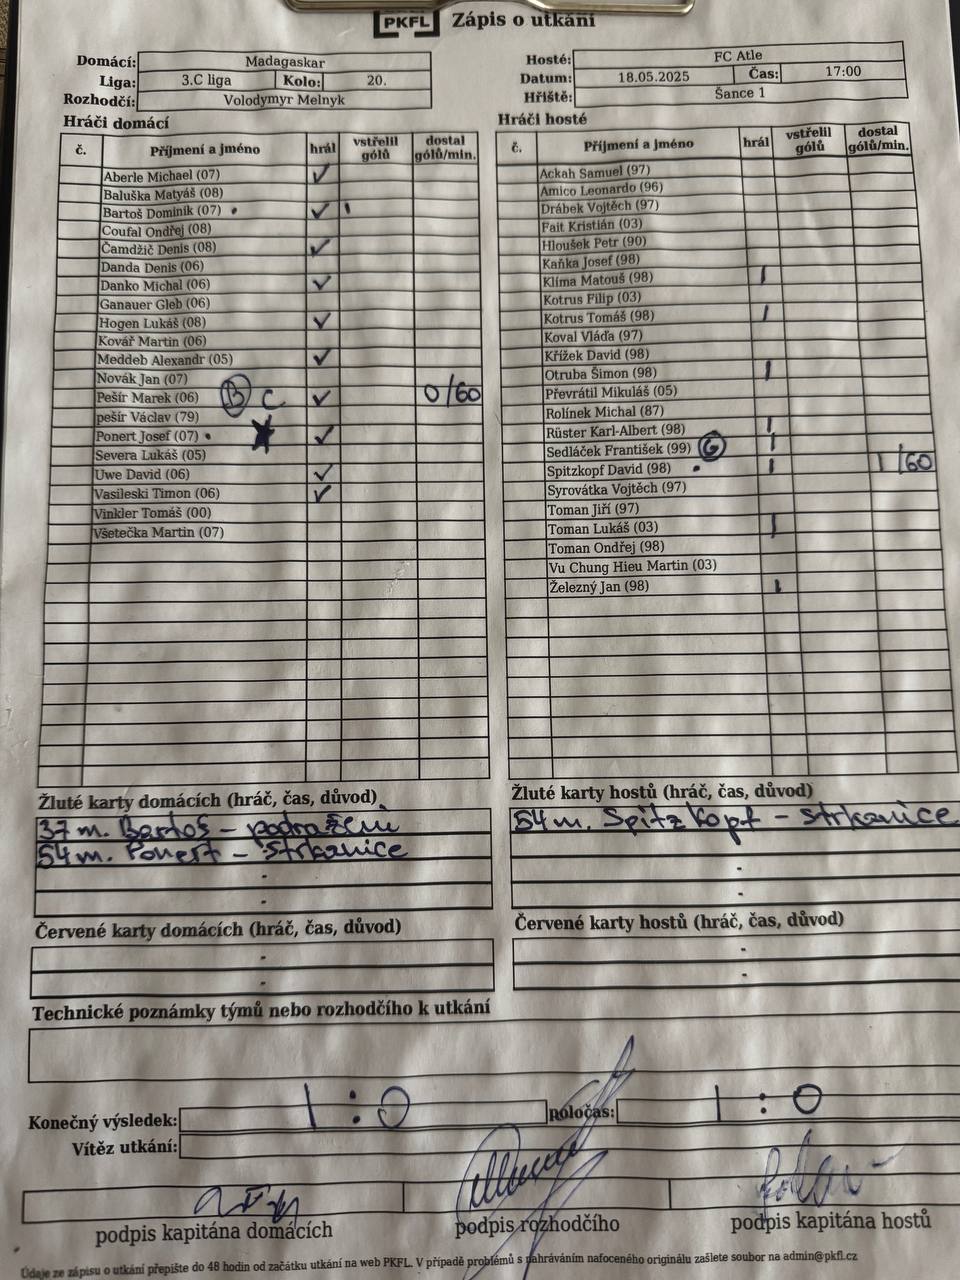 PKFL Zápis o utkání
Domácí: Madagaskar
Liga: 3.C liga Kolo: 20.
Rozhodčí: Volodymyr Melnyk
Hosté: FC Atle
Datum: 18.05.2025 Čas: 17:00
Hřiště: Šance 1
Hráči domácí
č. Příjmení a jméno hrál vstřelil gólů dostal gólů/min.
Aberle Michael (07) ✓
Baluška Matyáš (08)
Bartoš Dominik (07) • ✓ I
Coufal Ondřej (08)
Čamdžič Denis (08) ✓
Danda Denis (06)
Danko Michal (06) ✓
Ganauer Gleb (06)
Hogen Lukáš (08) ✓
Kovář Martin (06)
Meddeb Alexandr (05) ✓
Novák Jan (07)
Pešír Marek (06) B C ✓ 0/60
pešír Václav (79)
Ponert Josef (07) • ★ ✓
Severa Lukáš (05)
Uwe David (06) ✓
Vasileski Timon (06) ✓
Vinkler Tomáš (00)
Všetečka Martin (07)
Hráči hosté
č. Příjmení a jméno hrál vstřelil gólů dostal gólů/min.
Ackah Samuel (97)
Amico Leonardo (96)
Drábek Vojtěch (97)
Fait Kristián (03)
Hloušek Petr (90)
Kaňka Josef (98)
Klíma Matouš (98) I
Kotrus Filip (03)
Kotrus Tomáš (98) I
Koval Vláďa (97)
Křížek David (98)
Otruba Šimon (98) I
Převrátil Mikuláš (05)
Rolínek Michal (87)
Rüster Karl-Albert (98) I
Sedláček František (99) G I
Spitzkopf David (98) • I 1/60
Syrovátka Vojtěch (97)
Toman Jiří (97)
Toman Lukáš (03) I
Toman Ondřej (98)
Vu Chung Hieu Martin (03)
Železný Jan (98) I
Žluté karty domácích (hráč, čas, důvod)
37 m. Bartoš - podražení
54 m. Ponert - Strkanice
-
-
Žluté karty hostů (hráč, čas, důvod)
54 m. Spitzkopf - strkanice
-
-
Červené karty domácích (hráč, čas, důvod)
-
-
Červené karty hostů (hráč, čas, důvod)
-
-
Technické poznámky týmů nebo rozhodčího k utkání
Konečný výsledek: 1:0 poločas: 1:0
Vítěz utkání:
podpis kapitána domácích podpis rozhodčího podpis kapitána hostů
Údaje ze zápisu o utkání přepište do 48 hodin od začátku utkání na web PKFL. V případě problémů s nahráváním nafoceného originálu zašlete soubor na admin@pkfl.cz